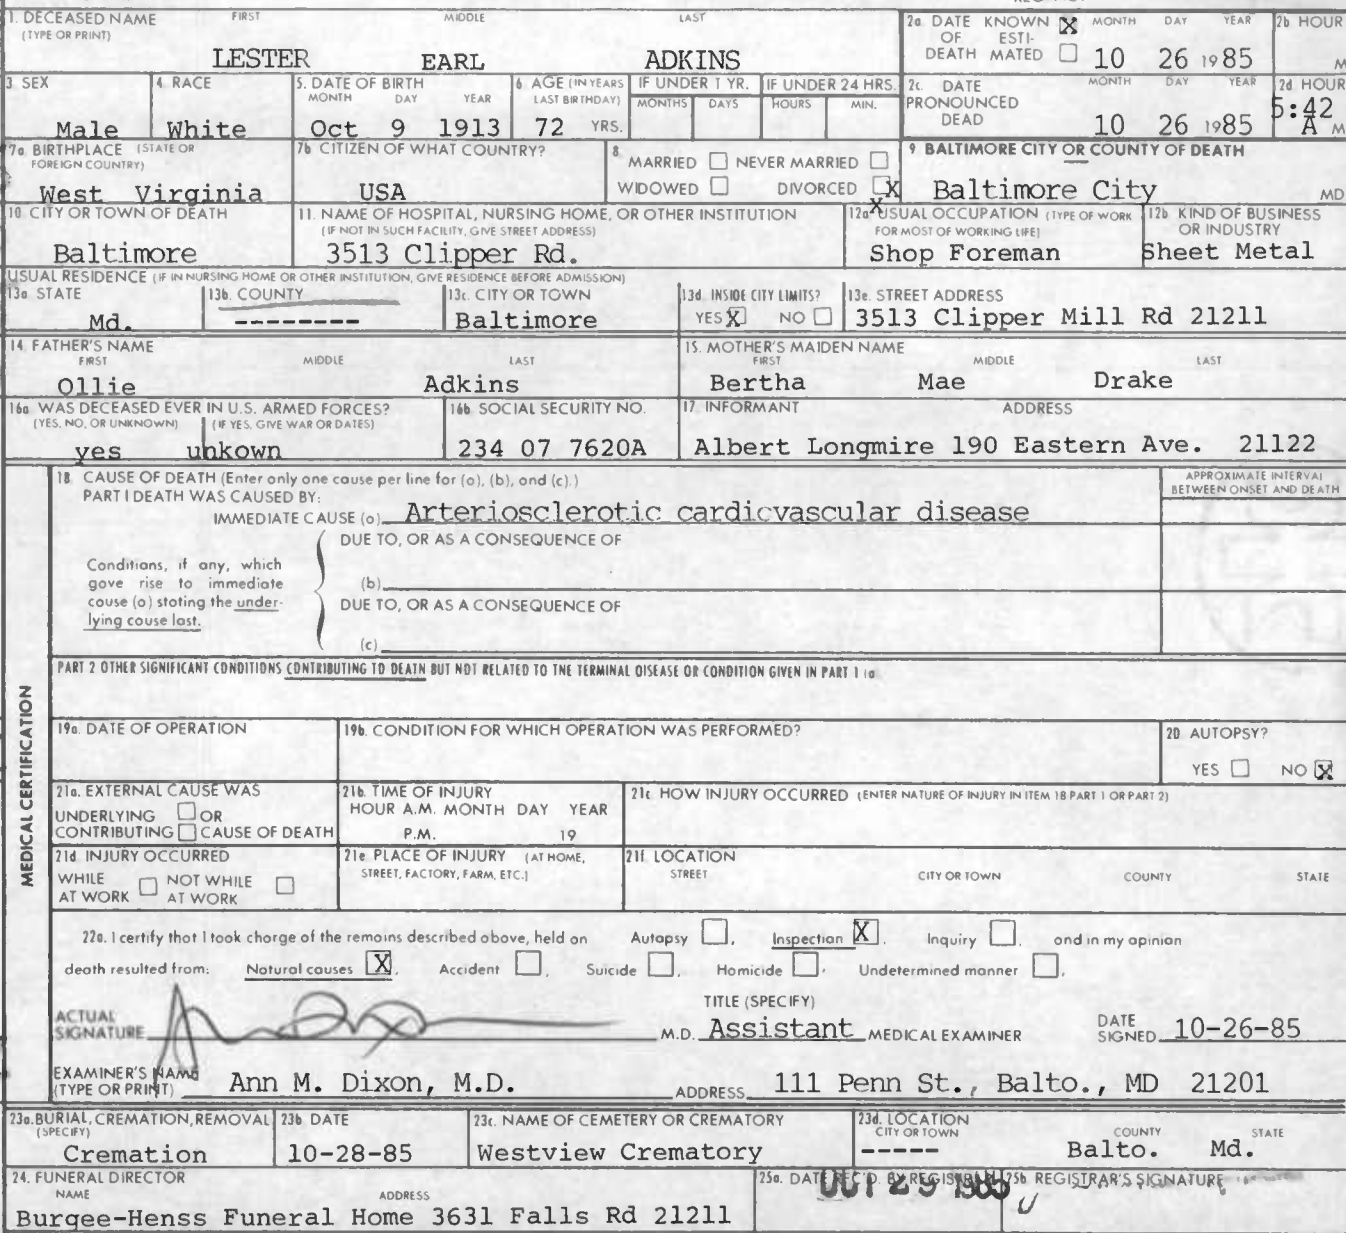 1. DECEASED NAME FIRST MIDDLE LAST
(TYPE OR PRINT)
LESTER EARL ADKINS
2a DATE KNOWN X MONTH DAY YEAR
OF ESTI-
DEATH MATED 10 26 1985
2b HOUR
M
3 SEX
Male
4. RACE
White
5. DATE OF BIRTH
MONTH DAY YEAR
Oct 9 1913
6 AGE (IN YEARS
LAST BIRTHDAY)
72 YRS.
IF UNDER 1 YR.
MONTHS DAYS
IF UNDER 24 HRS.
HOURS MIN.
2c. DATE MONTH DAY YEAR
PRONOUNCED
DEAD 10 26 1985
2d HOUR
5:42
A M
7a BIRTHPLACE (STATE OR
FOREIGN COUNTRY)
West Virginia
7b CITIZEN OF WHAT COUNTRY?
USA
8
MARRIED NEVER MARRIED
WIDOWED DIVORCED X
9 BALTIMORE CITY OR COUNTY OF DEATH
Baltimore City MD
10 CITY OR TOWN OF DEATH
Baltimore
11. NAME OF HOSPITAL, NURSING HOME, OR OTHER INSTITUTION
(IF NOT IN SUCH FACILITY, GIVE STREET ADDRESS)
3513 Clipper Rd.
12a X USUAL OCCUPATION (TYPE OF WORK
FOR MOST OF WORKING LIFE)
Shop Foreman
12b KIND OF BUSINESS
OR INDUSTRY
Sheet Metal
USUAL RESIDENCE (IF IN NURSING HOME OR OTHER INSTITUTION, GIVE RESIDENCE BEFORE ADMISSION)
13a STATE
Md.
13b. COUNTY
--------
13c. CITY OR TOWN
Baltimore
13d. INSIDE CITY LIMITS?
YES X NO
13e. STREET ADDRESS
3513 Clipper Mill Rd 21211
14. FATHER'S NAME
FIRST MIDDLE LAST
Ollie Adkins
15. MOTHER'S MAIDEN NAME
FIRST MIDDLE LAST
Bertha Mae Drake
16a WAS DECEASED EVER IN U.S. ARMED FORCES?
(YES, NO, OR UNKNOWN) (IF YES, GIVE WAR OR DATES)
yes unkown
16b SOCIAL SECURITY NO.
234 07 7620A
17 INFORMANT ADDRESS
Albert Longmire 190 Eastern Ave. 21122
MEDICAL CERTIFICATION
18 CAUSE OF DEATH (Enter only one cause per line for (a), (b), and (c).)
PART I DEATH WAS CAUSED BY:
IMMEDIATE CAUSE (a) Arteriosclerotic cardiovascular disease
APPROXIMATE INTERVAL
BETWEEN ONSET AND DEATH
DUE TO, OR AS A CONSEQUENCE OF
Conditions, if any, which
gave rise to immediate
cause (a) stating the under-
lying cause last.
(b)
DUE TO, OR AS A CONSEQUENCE OF
(c)
PART 2 OTHER SIGNIFICANT CONDITIONS CONTRIBUTING TO DEATH BUT NOT RELATED TO THE TERMINAL DISEASE OR CONDITION GIVEN IN PART 1 (a
19a. DATE OF OPERATION
19b. CONDITION FOR WHICH OPERATION WAS PERFORMED?
20 AUTOPSY?
YES NO X
21a. EXTERNAL CAUSE WAS
UNDERLYING OR
CONTRIBUTING CAUSE OF DEATH
21b. TIME OF INJURY
HOUR A.M. MONTH DAY YEAR
P.M. 19
21c HOW INJURY OCCURRED (ENTER NATURE OF INJURY IN ITEM 18 PART 1 OR PART 2)
21d INJURY OCCURRED
WHILE NOT WHILE
AT WORK AT WORK
21e PLACE OF INJURY (AT HOME,
STREET, FACTORY, FARM, ETC.)
21f. LOCATION
STREET CITY OR TOWN COUNTY STATE
22a. I certify that I took charge of the remains described above, held on Autopsy , Inspection X , Inquiry , and in my opinion
death resulted from: Natural causes X , Accident , Suicide , Homicide , Undetermined manner ,
ACTUAL
SIGNATURE M.D.
TITLE (SPECIFY)
Assistant MEDICAL EXAMINER
DATE
SIGNED 10-26-85
EXAMINER'S NAME
(TYPE OR PRINT) Ann M. Dixon, M.D. ADDRESS 111 Penn St., Balto., MD 21201
23a. BURIAL, CREMATION, REMOVAL
(SPECIFY)
Cremation
23b DATE
10-28-85
23c. NAME OF CEMETERY OR CREMATORY
Westview Crematory
23d. LOCATION
CITY OR TOWN COUNTY STATE
----- Balto. Md.
24. FUNERAL DIRECTOR
NAME ADDRESS
Burgee-Henss Funeral Home 3631 Falls Rd 21211
25a. DATE REC'D. BY REGISTRAR
OCT 29 1985
25b REGISTRAR'S SIGNATURE